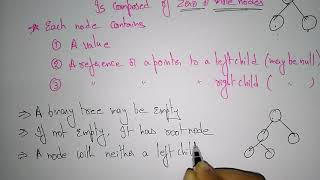 Is composed of zero or more nodes
* Each node contains
① A value
② A reference or a pointer to a left child (may be null)
③ " " " right child ( " )
⇒ A binary tree may be Empty
⇒ If not Empty, It has root node
⇒ A node with neither a left child